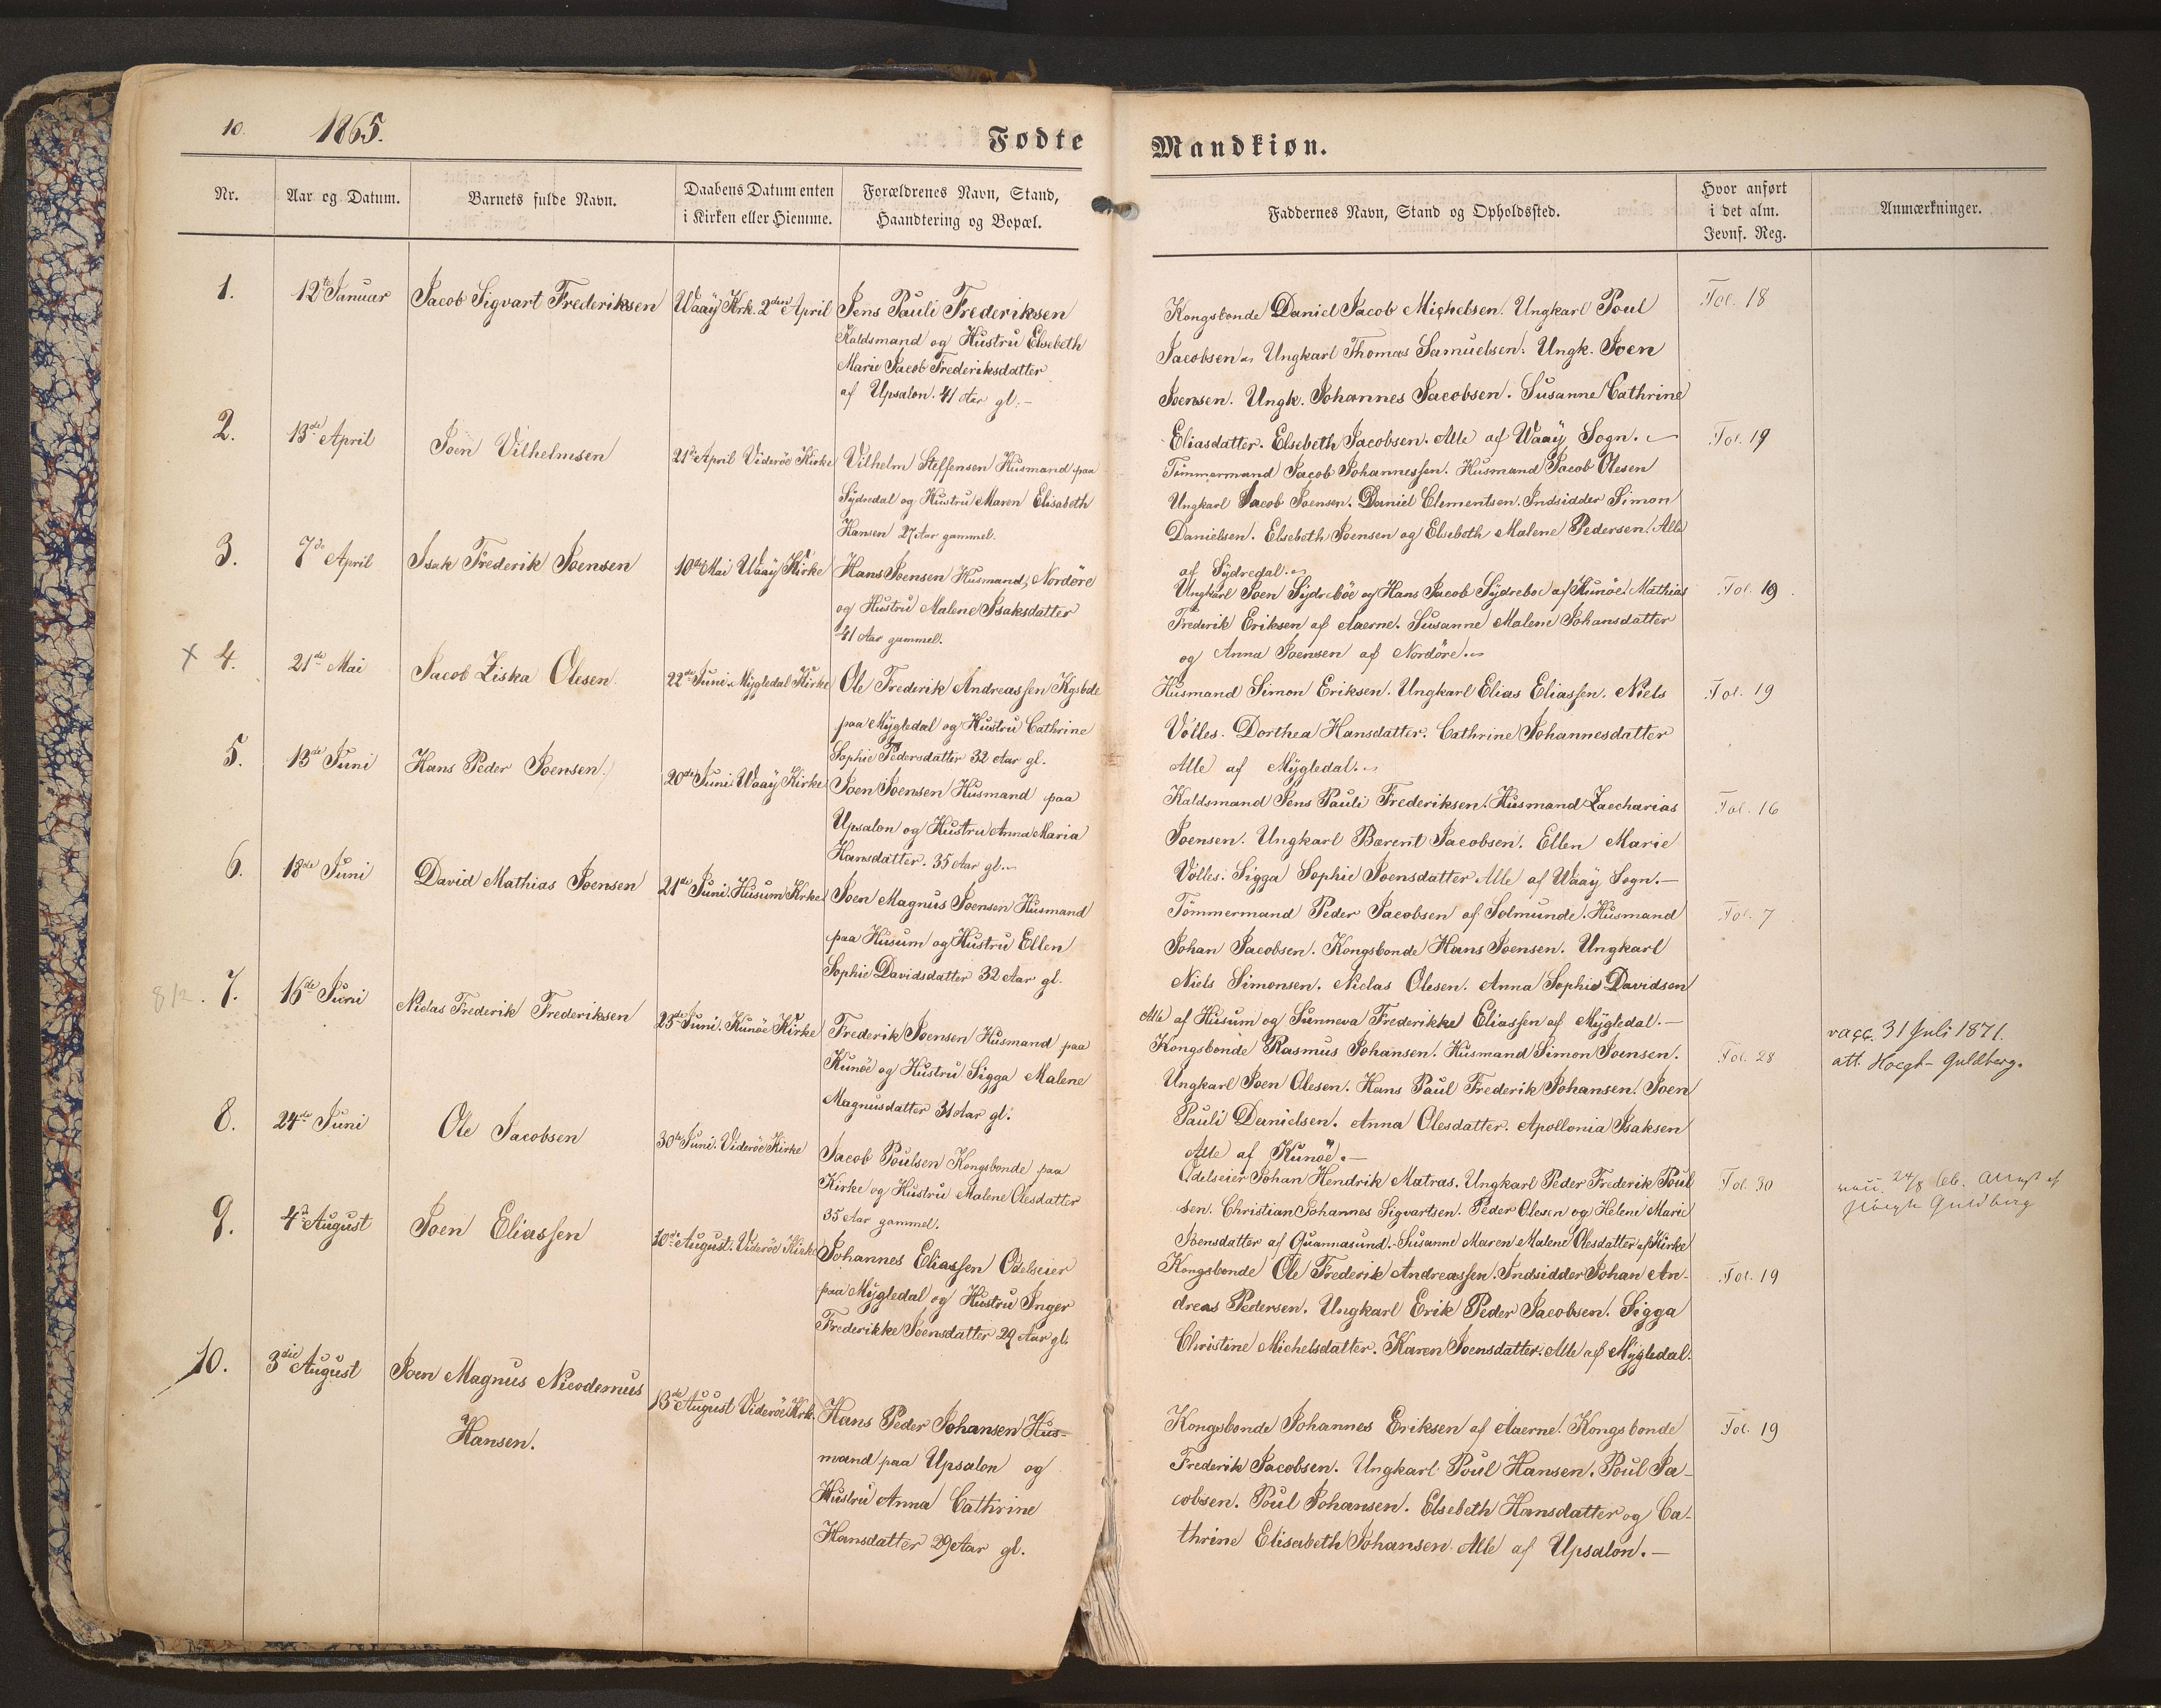 10. 1865. Fødte Mandkiøn.
Nr. Aar og Datum. Barnets fulde Navn. Daabens Datum enten i Kirken eller Hiemme. Forældrenes Navn, Stand, Haandtering og Bopæl. Faddernes Navn, Stand og Opholdssted. Hvor anført i det alm. Jevnf. Reg. Anmærkninger.
1. 12te Januar Jacob Sigvart Frederiksen Waaÿ Krk. 2den April Jens Pauli Frederiksen
Kaldsmand og Hustru Elsebeth
Marie Jacob Frederiksdatter
af Upsalon. 41 Aar gl.-
Kongsbonde Daniel Jacob Michelsen. Ungkarl Poul
Jacobsen Ungkarl Thomas Samuelsen. Ungk. Joen
Joensen. Ungk. Johannes Jacobsen. Susanne Cathrine
Eliasdatter. Elsebeth Jacobsen. Alle af Waaÿ Sogn.
Fol. 18
2. 13de April Joen Vilhelmsen 21de April Viderøe Kirke Vilhelm Steffensen Husmand paa
Sÿdredal og Hustru Maren Elisabeth
Hansen 27 Aar gammel.
Tømmermand Jacob Johannessen. Husmand Jacob Olesen
Ungkarl Jacob Joensen. Daniel Clementsen. Indsidder Simon
Danielsen. Elsebeth Joensen og Elsebeth Malene Pedersen. Alle
af Sÿdredal.
Fol. 19
3. 7de April Isak Frederik Joensen 10de Mai Waaÿ Kirke Hans Joensen Husmand, Nordøre
og Hustru Malene Isaksdatter
41 Aar gammel.
Ungkarl Joen Sÿdrebøe og Hans Jacob Sÿdreboe af Kunøe. Mathias
Frederik Eriksen af Aaerne. Susanne Malene Johansdatter
og Anna Joensen af Nordøre.
Fol. 19
x 4. 21de Mai Jacob Ziska Olesen 22de Juni. Mygledal Kirke Ole Frederik Andreassen Kgsbde
paa Mÿgledal og Hustru Cathrine
Sophie Pedersdatter 32 Aar gl.
Husmand Simon Eriksen. Ungkarl Elias Eliassen. Niels
Völles. Dorthea Hansdatter. Cathrine Johannesdatter
Alle af Mÿgledal.
Fol. 19
5. 13de Juni Hans Peder Joensen 20de Juni Waaÿ Kirke Joen Joensen Husmand paa
Upsalon og Hustru Anna Maria
Hansdatter. 35 Aar gl.
Kaldsmand Jens Pauli Frederiksen. Husmand Zaccharias
Joensen. Ungkarl Barent Jacobsen. Ellen Marie
Völles. Sigga Sophie Joensdatter Alle af Waaÿ Sogn.—
Fol. 16
6. 18de Juni David Mathias Joensen 21de Juni. Husum Krke. Joen Magnus Joensen Husmand
paa Husum og Hustru Ellen
Sophie Davidsdatter 32 Aar gl.
Tömmermand Peder Jacobsen af Solmunde. Husmand
Johan Jacobsen. Kongsbonde Hans Joensen. Ungkarl
Niels Simonsen. Niclas Olesen. Anna Sophie Davidsen
Alle af Husum og Sunneva Frederikke Eliassen af Mÿgledal.—
Fol. 7
7. 16de Juni Niclas Frederik Frederiksen 25de Juni. Kunöe Kirke Frederik Joensen Husmand paa
Kunöe og Hustru Sigga Malene
Magnusdatter 31 Aar gl.
Kongsbonde Rasmus Johansen. Husmand Simon Joensen.
Ungkarl Joen Olesen. Hans Paul Frederik Johansen. Joen
Pauli Danielsen. Anna Olesdatter. Apollonia Isaksen
Alle af Kunöe.—
Fol. 28
vacc. 31 Juli 1871.
att. Hoegh-Guldberg.
8. 24de Juni Ole Jacobsen 30te Juni. Viderøe Kirke Jacob Poulsen Kongsbonde paa
Kirke og Hustru Malene Olesdatter
35 Aar gammel.
Odelseier Johan Hendrik Matras. Ungkarl Peder Frederik Poul
sen. Christian Johannes Sigvartsen. Peder Olesen og Helene Marie
Joensdatter af Quannasund.- Susanne Maren Malene Olesdatter af Kirke
Fol. 30
Guldberg
9. 4de August Joen Eliassen 10de August. Viderøe Kirke Johannes Eliassen Odelseier
paa Mÿgledal og Hustru Inger
Frederikke Joensdatter 29 Aar gl.
Kongsbonde Ole Frederik Andreassen. Indsidder Johan An-
dreas Pedersen. Ungkarl Erik Peder Jacobsen. Sigga
Christine Michelsdatter. Karen Joensdatter. Alle af Mÿgledal.
Fol. 19
10. 3die August Joen Magnus Nicodemus
Hansen.
13de August Viderøe Krk. Hans Peder Johansen Hus-
mand paa Upsalon og
Hustru Anna Cathrine
Hansdatter 29 Aar gl.
Kongsbonde Johannes Eriksen af Aaerne. Kongsbonde
Frederik Jacobsen. Ungkarl Poul Hansen. Poul Ja-
cobsen. Poul Johansen. Elsebeth Hansdatter og Ca-
thrine Elisabeth Johansen. Alle af Upsalon.—
Fol. 19